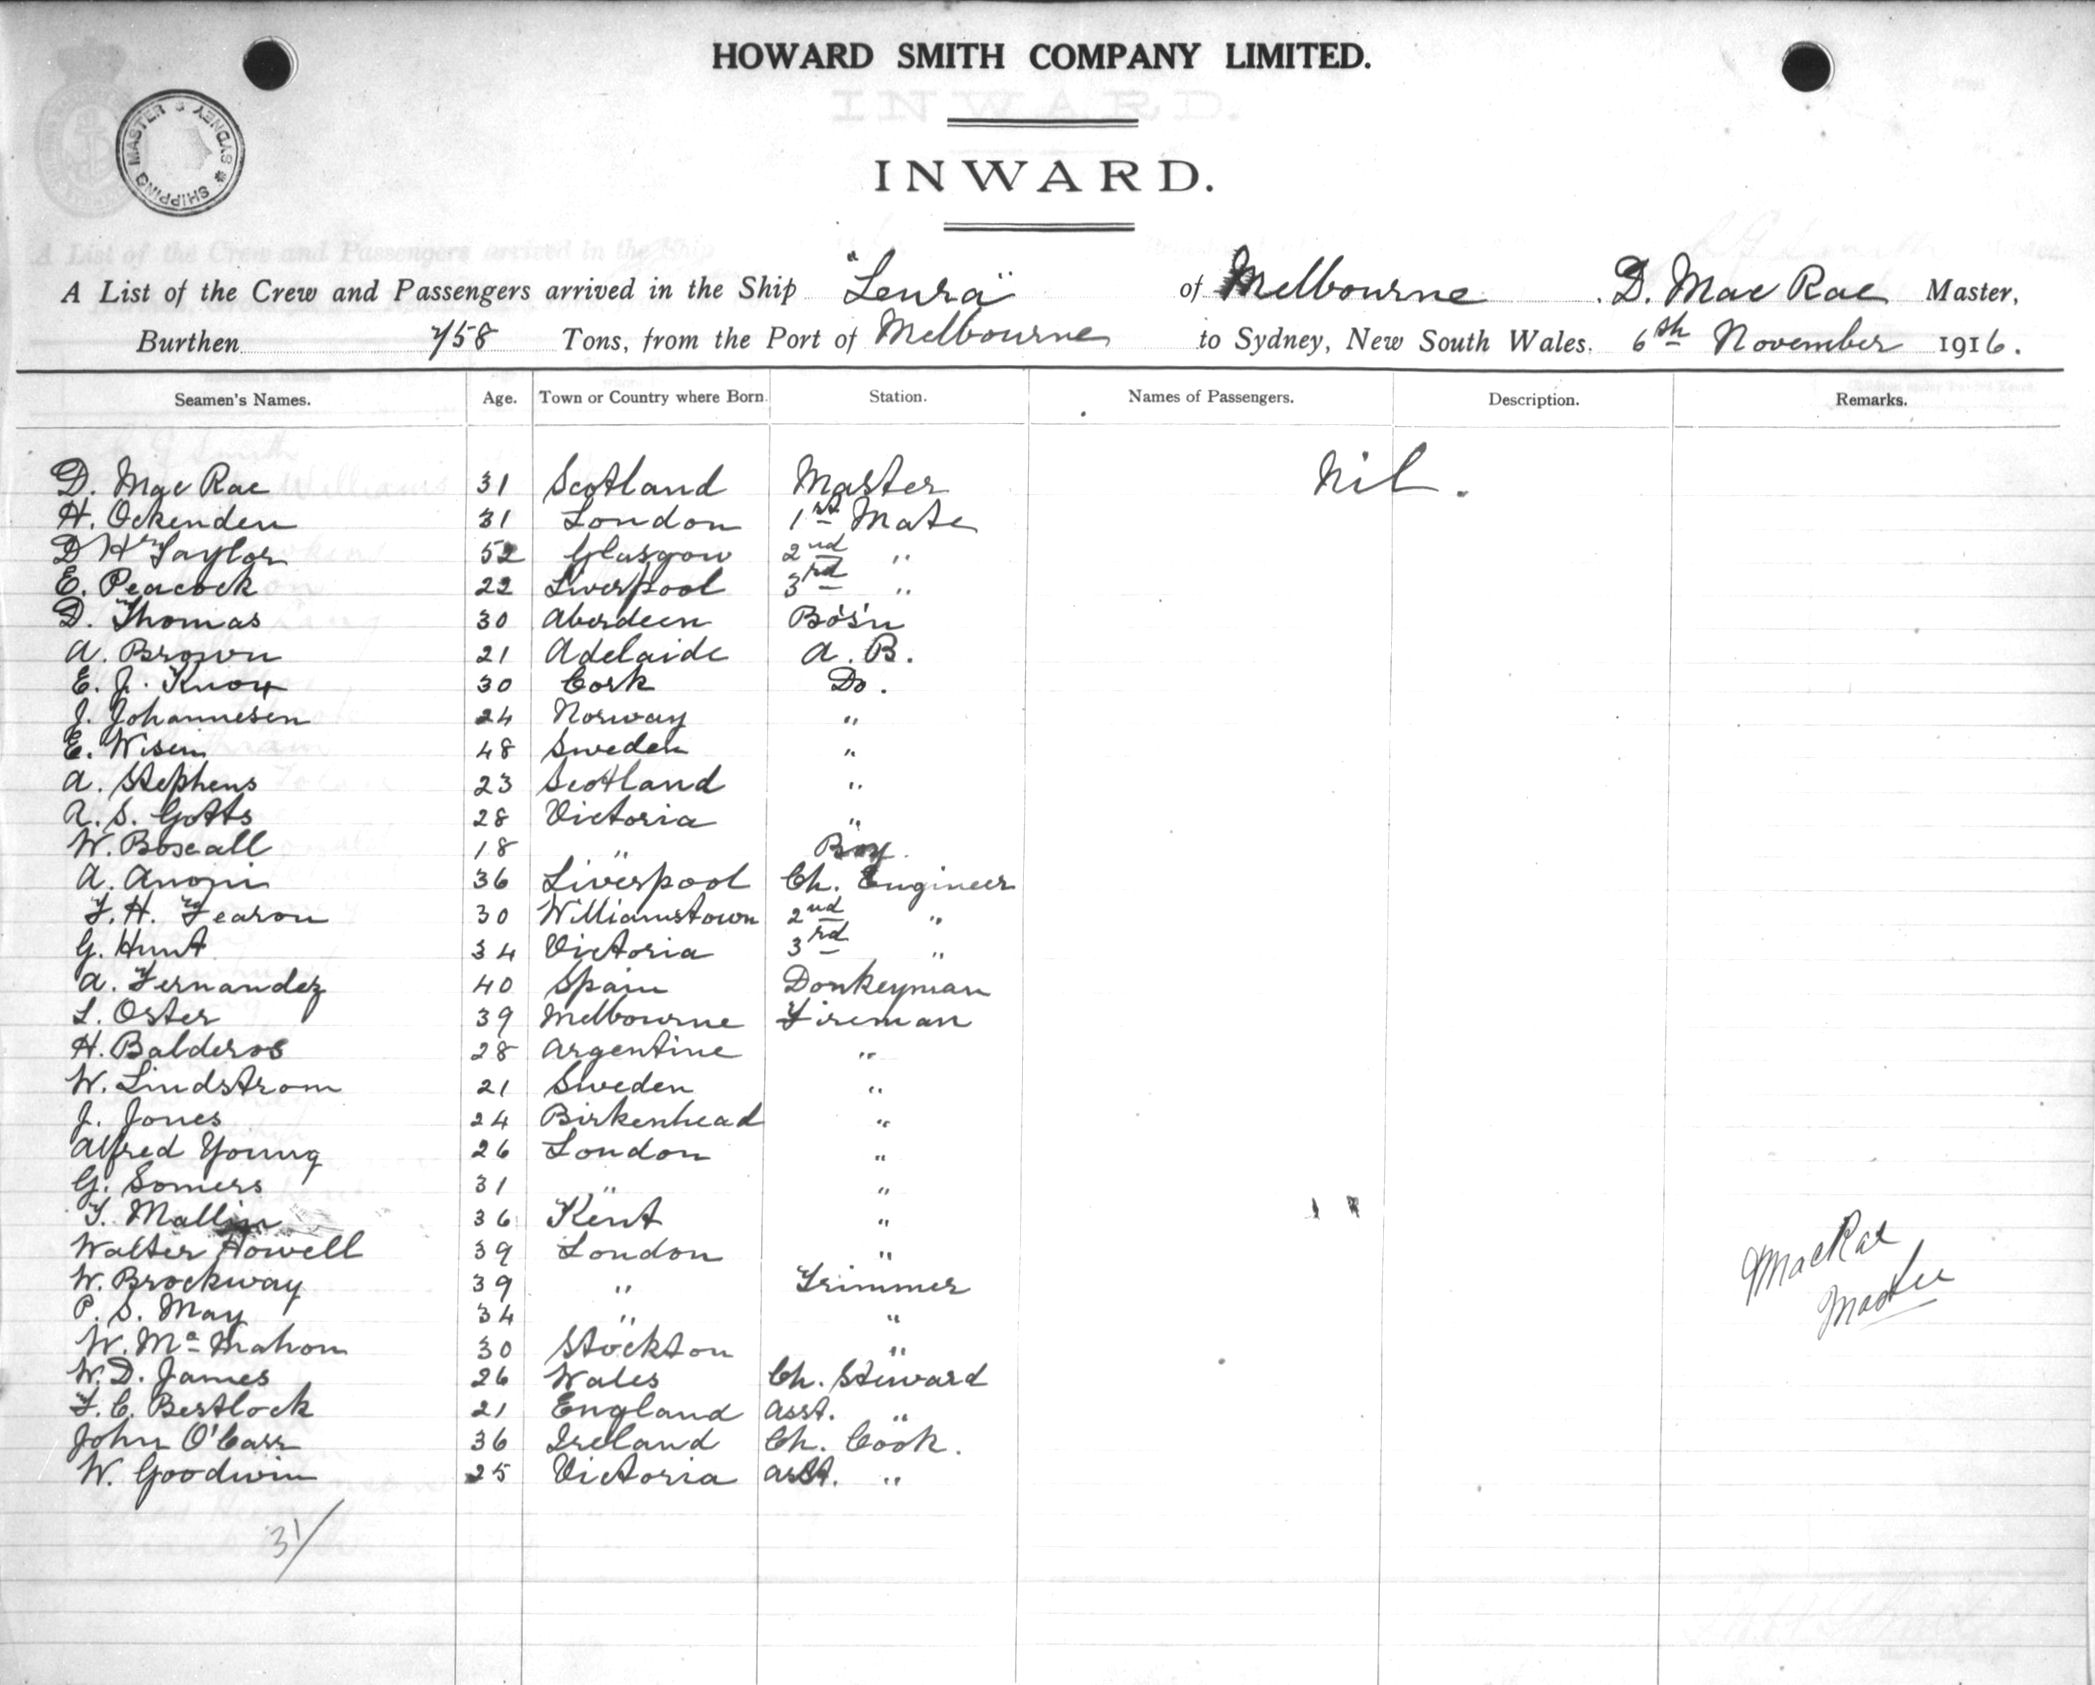 HOWARD SMITH COMPANY LIMITED.
SHIPPING MASTER SYDNEY
INWARD.
A List of the Crew and Passengers arrived in the Ship "Leura" of Melbourne D. MacRae Master,
Burthen 758 Tons, from the Port of Melbourne to Sydney, New South Wales. 6th November 1916.
Seamen's Names. Age. Town or Country where Born. Station. Names of Passengers. Description. Remarks.
D. MacRae 31 Scotland Master Nil.
H. Ockenden 31 London 1st Mate
D Hr Taylor 52 Glasgow 2nd "
E. Peacock 22 Liverpool 3rd "
D. Thomas 30 Aberdeen Bo's'n
A. Brown 21 Adelaide A. B.
E. J. Knox 30 Cork Do.
J. Johannesen 24 Norway "
E. 48 Sweden "
A. Stephens 23 Scotland "
R. S. Gotts 28 Victoria "
W. Boxall 18 " Boy
A. 36 Liverpool Ch. Engineer
F. H. Fearon 30 Williamstown 2nd "
G. Hunt 34 Victoria 3rd "
A. Fernandez 40 Spain Donkeyman
L. Oster 39 Melbourne Fireman
H. Balderos 28 Argentine "
W. Lindstrom 21 Sweden "
J. Jones 24 Birkenhead "
Alfred Young 26 London "
G. Somers 31 " "
T. Mallin 36 Kent "
Walter Howell 39 London "
W. Brockway 39 " Trimmer
P. S. May 34 " "
W. Mc Mahon 30 Stockton "
W. D. James 26 Wales Ch. Steward
F. C. Bestlock 21 England Asst. "
John O'Carr 36 Ireland Ch. Cook.
W. Goodwin 25 Victoria Asst. "
MacRae
Master
31/